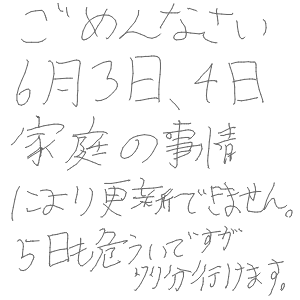 ごめんなさい
6月3日、4日
家庭の事情
により更新できません。
5日も危ういですが
多分行けます。